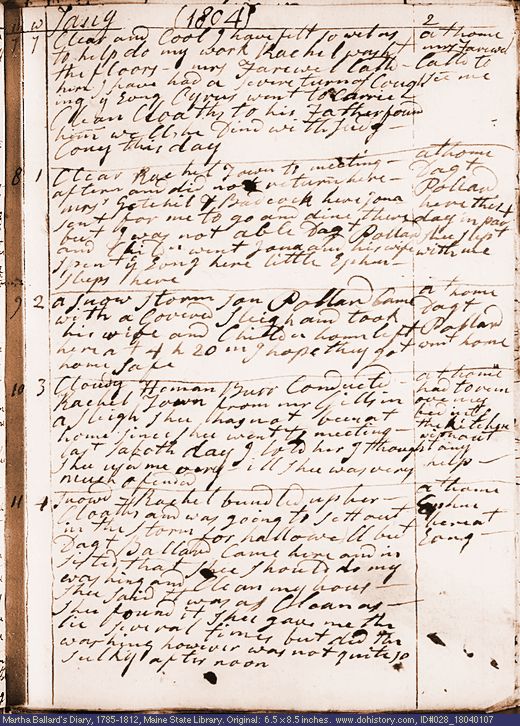 m w Jany (1804)
7 7 Clear and Cool I have felt so well as
to help do my work Rachel washt
the floors - mrs Farewel Calld
here I have had a severe turn of Cough
ing ys Evng Cyrus went to Carrie
Clean Cloaths to his Father found
him well he Dind with Judg
Cony this day
at home
mrs Farewel
Calld to
see me
8 1 Clear Rachel Town to meeting
aftern and did not return here
mrs Getchel & Babcock here Jona
sent for me to go and dine there
but I was not able Dagt Pollard
and Childn went Jona and his wife
spent ys Evng here little Ephm
sleeps here
at home
Dagt
Pollard
here this
day
shee slept
with me
9 2 a snow storm son Pollard Came
with a Covered Sleigh and took
his wife and Children home left
here at 4 h 20 m I hope they got
home safe
at home
Dagt
Pollard
went home
10 3 Cloudy Heman Burr Conducted
Rachel Town from mr Gillsin
a sleigh shee has not been at
home since shee went to meeting
last Saboth day I told her I thought
shee usd me very ill shee was very
much ofended
at home
had to
move my
bed into
the kitchen
without
any
help
11 4 Snowd Rachel bundled up her
Cloaths and was going to sett out
in the storm for hallowell but
Dagt Ballard Came here and in
sisted that shee should do my
washing and Clean my hous
shee said it was as Clean as
shee found it shee gave me the
lie several times but did the
washing however was not quite so
sulky afternoon
at home
Ephm
here at
Evng
Martha Ballard's Diary, 1785-1812, Maine State Library. Original: 6.5 x 8.5 inches. www.dohistory.com, ID#028_18040107